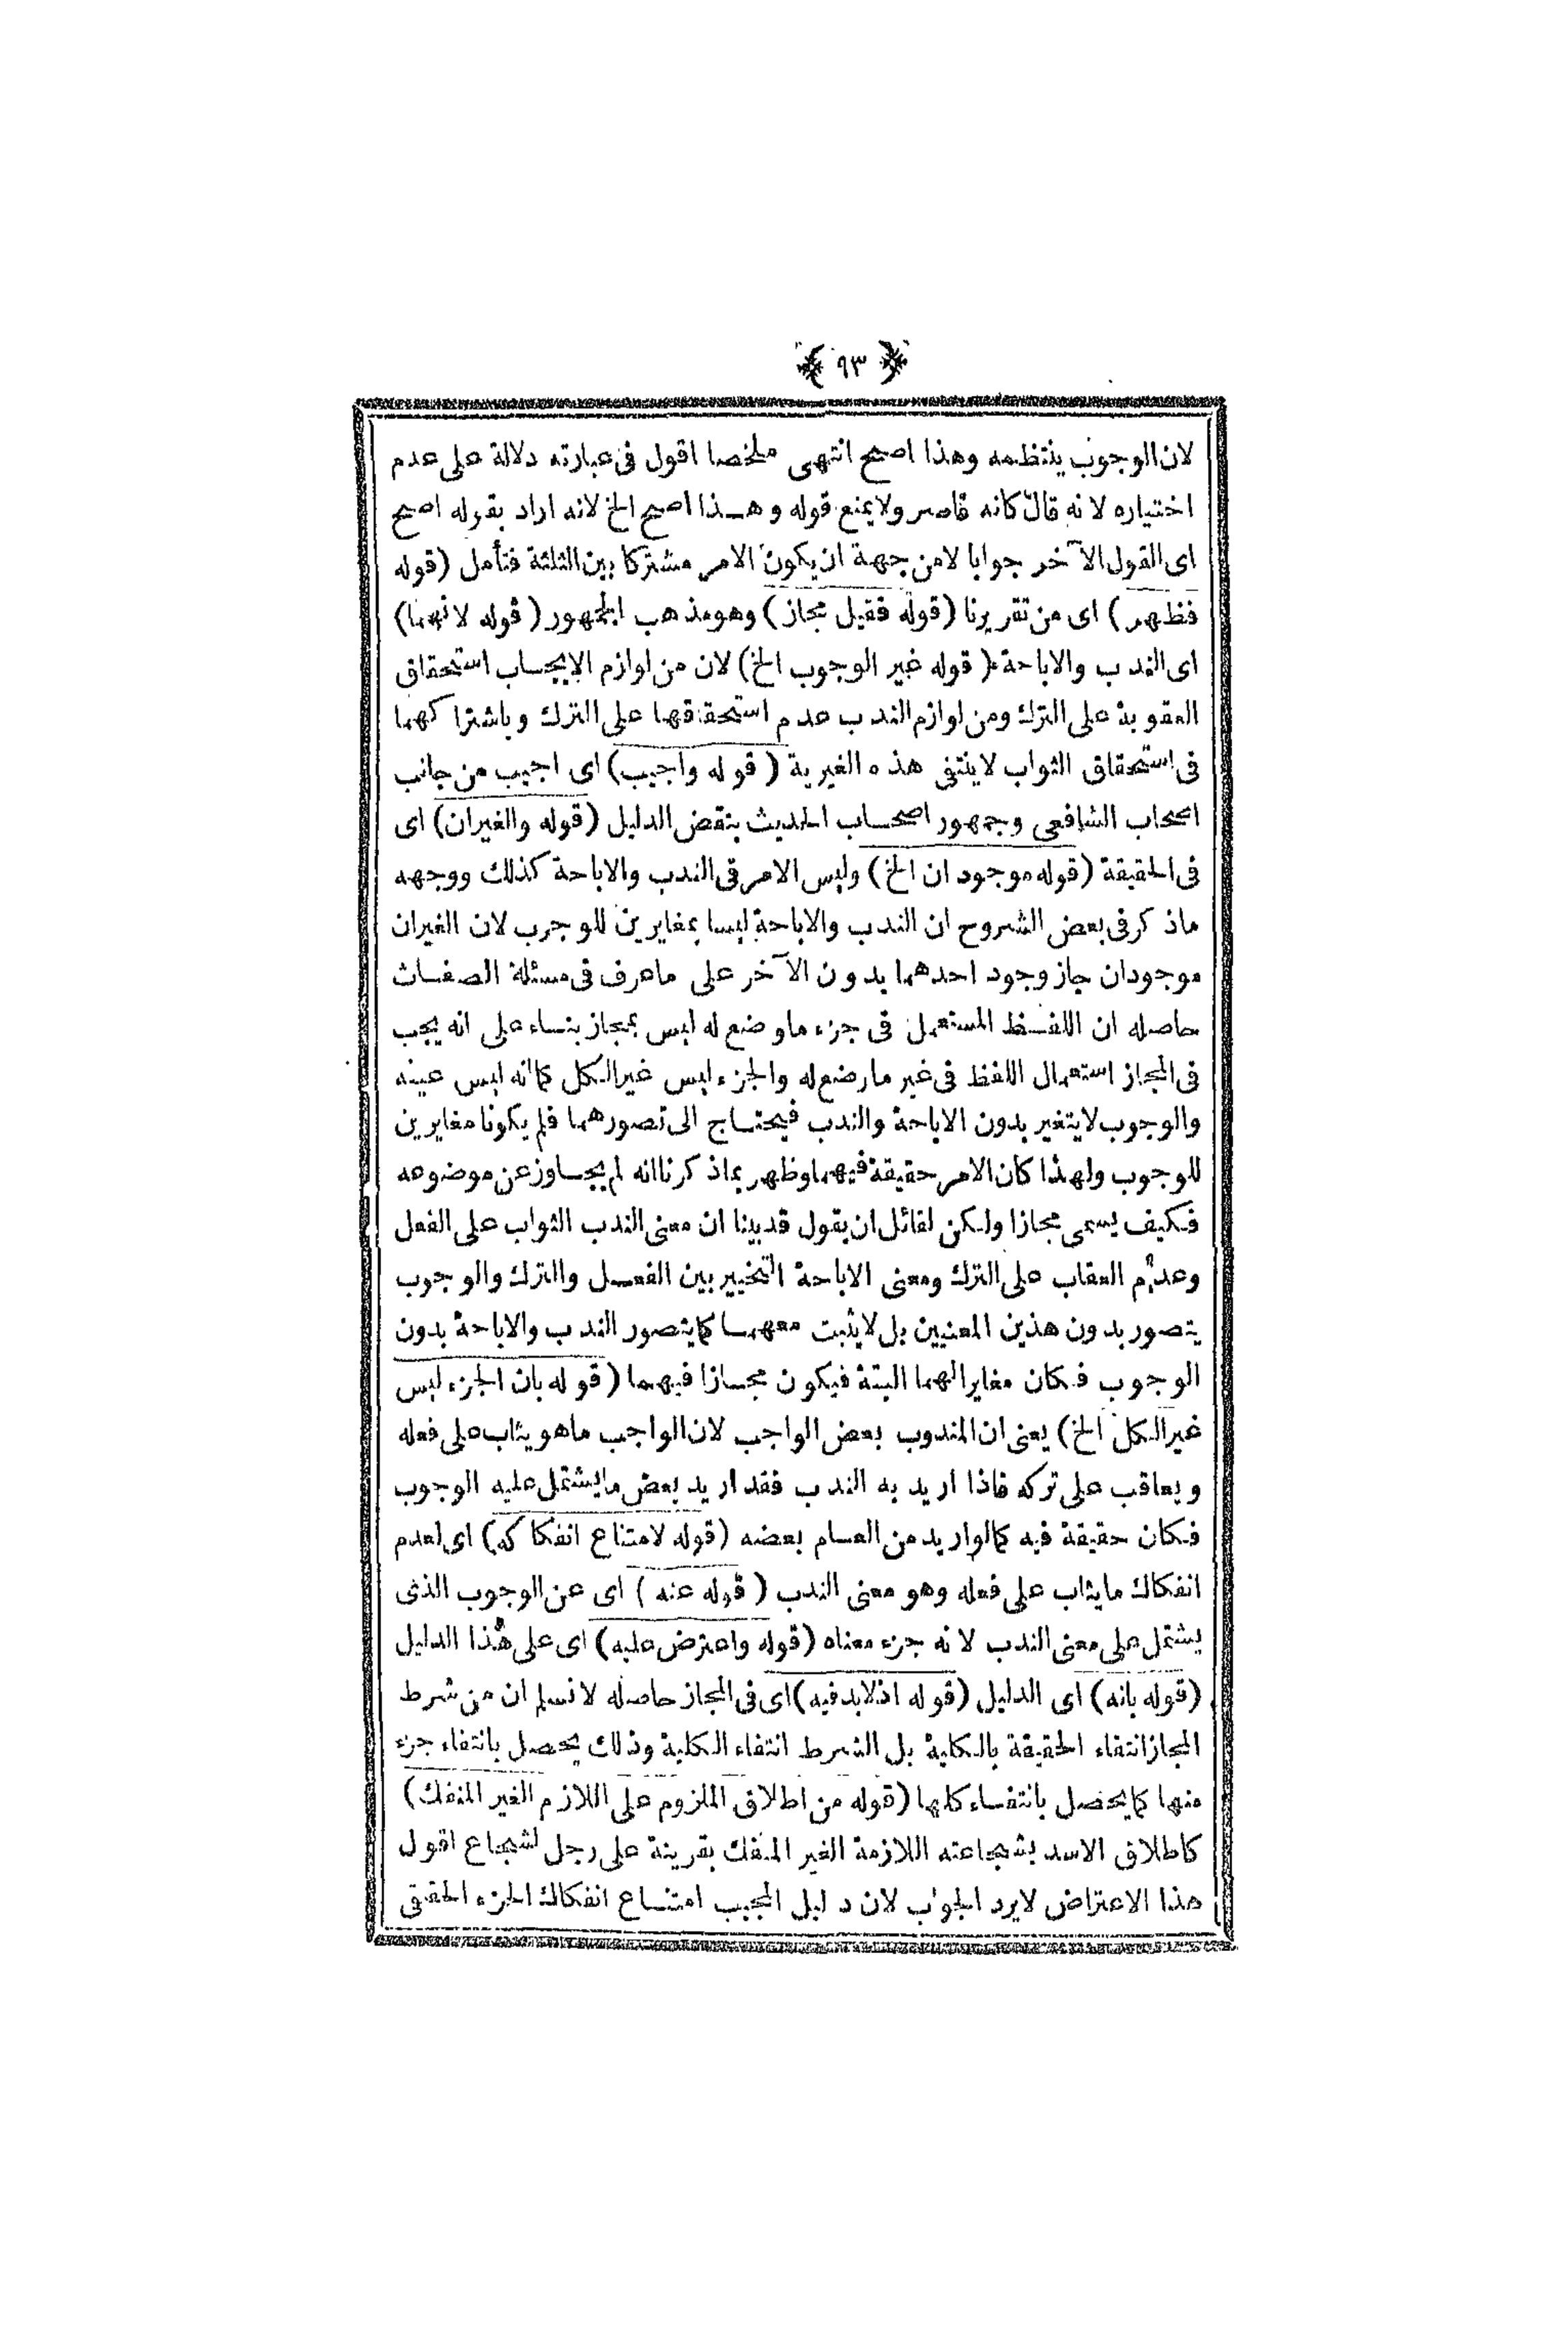 ﴿ ٩٣ ﴾
لان الوجوب ينتظمه وهذا اصح انتهى ملخصا اقول فى عبارته دلالة على عدم
اختياره لانه قال كانه قاصر ولا يمنع قوله وهذا اصح الخ لانه اراد بقوله اصح
اى القول الآخر جوابا لا من جهة ان يكون الامر مشتركا بين الثلثة فتأمل (قوله
فظهر) اى من تقريرنا (قوله فقيل مجاز) وهو مذهب الجمهور (قوله لانهما)
اى الندب والاباحة (قوله غير الوجوب الخ) لان من لوازم الايجاب استحقاق
العقوبة على الترك ومن لوازم الندب عدم استحقاقها على الترك وباشتراكهما
فى استحقاق الثواب لا ينتفى هذه الغيرية (قوله واجيب) اى اجيب من جانب
اصحاب الشافعى وجمهور اصحاب الحديث بنقض الدليل (قوله والغيران) اى
فى الحقيقة (قوله موجودان الخ) وليس الامر فى الندب والاباحة كذلك ووجهه
ماذكر فى بعض الشروح ان الندب والاباحة ليسا بمغايرين للوجوب لان الغيران
موجودان جاز وجود احدهما بدون الآخر على ماعرف فى مسئلة الصفات
حاصله ان اللفظ المستعمل فى جزء ماوضع له ليس بمجاز بناء على انه يجب
فى المجاز استعمال اللفظ فى غير ماوضع له والجزء ليس غير الكل كما انه ليس عينه
والوجوب لا يتغير بدون الاباحة والندب فيحتاج الى تصورهما فلم يكونا مغايرين
للوجوب ولهذا كان الامر حقيقة فيهما وظهر بماذكرنا انه لم يجاوز عن موضوعه
فكيف يسمى مجازا ولكن لقائل ان يقول قد بينا ان معنى الندب الثواب على الفعل
وعدم العقاب على الترك ومعنى الاباحة التخيير بين الفعل والترك والوجوب
يتصور بدون هذين المعنيين بل لا يثبت معهما كما يتصور الندب والاباحة بدون
الوجوب فكان مغايرا لهما البتة فيكون مجازا فيهما (قوله بان الجزء ليس
غير الكل الخ) يعنى ان المندوب بعض الواجب لان الواجب ماهو يثاب على فعله
ويعاقب على تركه فاذا اريد به الندب فقد اريد بعض مايشتمل عليه الوجوب
فكان حقيقة فيه كما لو اريد من العام بعضه (قوله لامتناع انفكاكه) اى لعدم
انفكاك مايثاب على فعله وهو معنى الندب (قوله عنه) اى عن الوجوب الذى
يشتمل على معنى الندب لانه جزء معناه (قوله واعترض عليه) اى على هذا الدليل
(قوله بانه) اى الدليل (قوله اذ لا بد فيه) اى فى المجاز حاصله لا نسلم ان من شرط
المجاز انتفاء الحقيقة بالكلية بل الشرط انتفاء الكلية وذلك يحصل بانتفاء جزء
منها كما يحصل بانتفاء كلها (قوله من اطلاق الملزوم على اللازم الغير المنفك)
كاطلاق الاسد بشجاعته اللازمة الغير المنفك بقرينة على رجل لشجاع اقول
هذا الاعتراض لا يرد الجواب لان دليل المجيب امتناع انفكاك الجزء الحقيقى